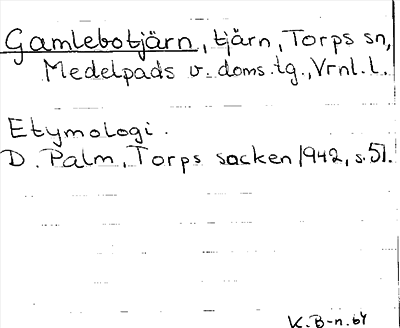 Gamlebotjärn, tjärn, Torps sn,
Medelpads v. doms.tg., Vrnl. l.
Etymologi.
D. Palm, Torps socken 1942, s. 51.
K. B-n. 64